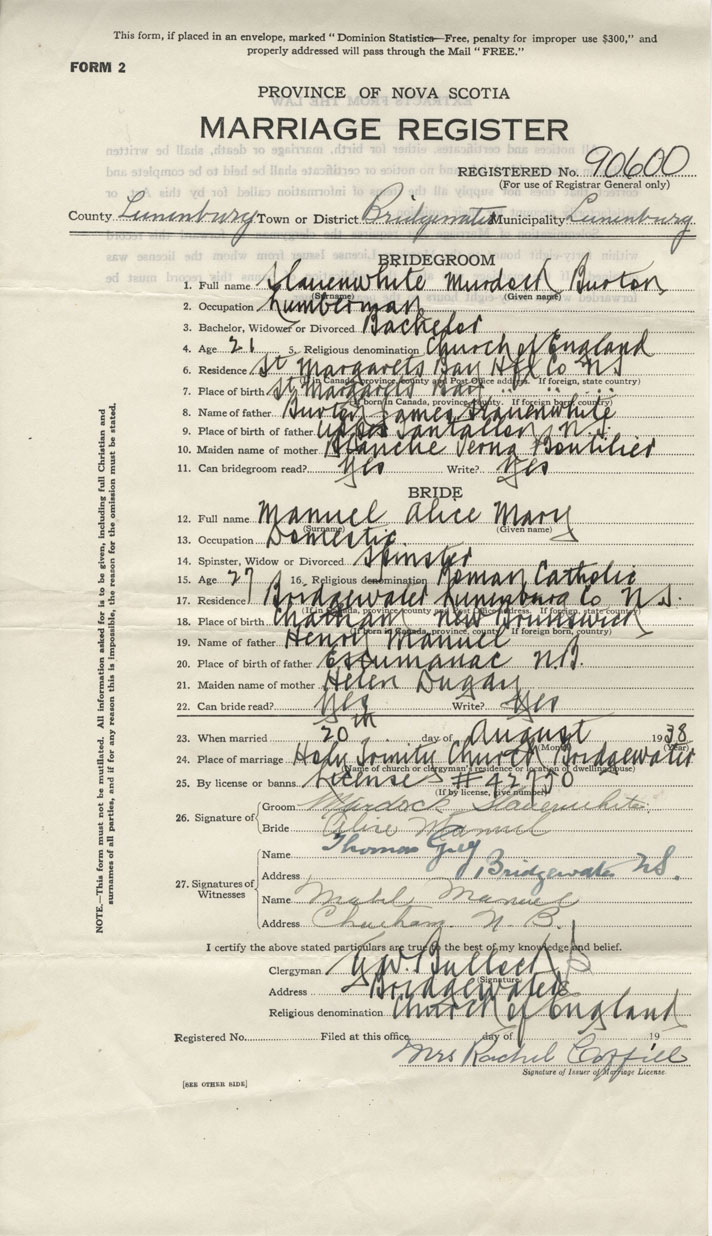 This form, if placed in an envelope, marked "Dominion Statistics—Free, penalty for improper use $300," and
properly addressed will pass through the Mail "FREE."
FORM 2
PROVINCE OF NOVA SCOTIA
MARRIAGE REGISTER
REGISTERED No. 90600
(For use of Registrar General only)
County Lunenburg Town or District Bridgewater Municipality Lunenburg
BRIDEGROOM
1. Full name Slauenwhite Murdock Burton
(Surname) (Given name)
2. Occupation Lumberman
3. Bachelor, Widower or Divorced Bachelor
4. Age 21 5. Religious denomination Church of England
6. Residence St Margarets Bay Hfx Co NS
(If in Canada, province, county and Post Office address. If foreign, state country)
7. Place of birth St Margarets Bay " " "
(If born in Canada, province, county. If foreign born, country)
8. Name of father Burton James Slauenwhite
9. Place of birth of father Upper Tantallon N.S.
10. Maiden name of mother Blanche Verna Boutilier
11. Can bridegroom read? Yes Write? Yes
BRIDE
12. Full name Manuel Alice Mary
(Surname) (Given name)
13. Occupation Domestic
14. Spinster, Widow or Divorced Spinster
15. Age 27 16. Religious denomination Roman Catholic
17. Residence Bridgewater Lunenburg Co N.S.
(If in Canada, province, county and Post Office address. If foreign, state country)
18. Place of birth Chatham New Brunswick
(If born in Canada, province, county. If foreign born, country)
19. Name of father Henry Manuel
20. Place of birth of father Escuminac N.B.
21. Maiden name of mother Helen Dugay
22. Can bride read? Yes Write? Yes
23. When married 20th day of August 1938
(Month) (Year)
24. Place of marriage Holy Trinity Church Bridgewater
(Name of church or clergyman's residence or location of dwelling house)
25. By license or banns License #42750
(If by license, give number)
26. Signature of Groom Murdock Slauenwhite
Bride Alice Manuel
27. Signatures of Witnesses Name Thomas
Address Bridgewater NS.
Name Mabel Manuel
Address Chatham. N. B.
I certify the above stated particulars are true to the best of my knowledge and belief.
Clergyman G.W. Bullock
(Signature)
Address Bridgewater
Religious denomination Church of England
Registered No. Filed at this office day of 19
Mrs Rachel Coffill
Signature of Issuer of Marriage License.
[SEE OTHER SIDE]
NOTE.—This form must not be mutilated. All information asked for is to be given, including full Christian and
surnames of all parties, and if for any reason this is impossible, the reason for the omission must be stated.